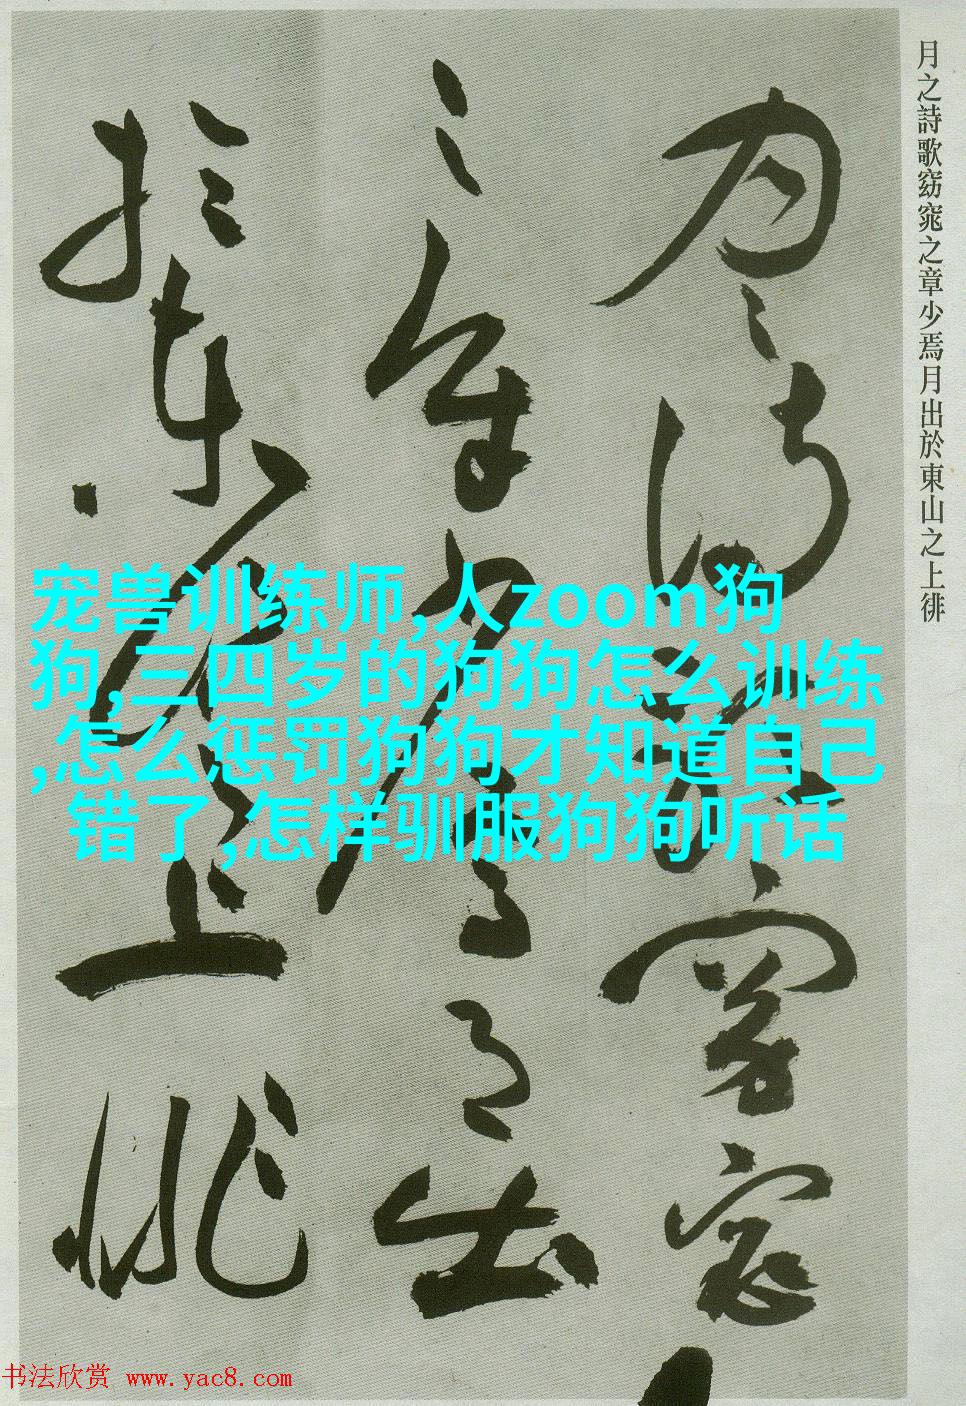 月之詩歌窈窕之章少焉月出於東山之上徘
月之詩歌窈窕
之章少焉月出
於東山之上徘
宠兽训练师,人zoom狗
狗,三四岁的狗狗怎么训练
,怎么惩罚狗狗才知道自己
错了,怎样驯服狗狗听话
书法欣赏 www.yac8.com